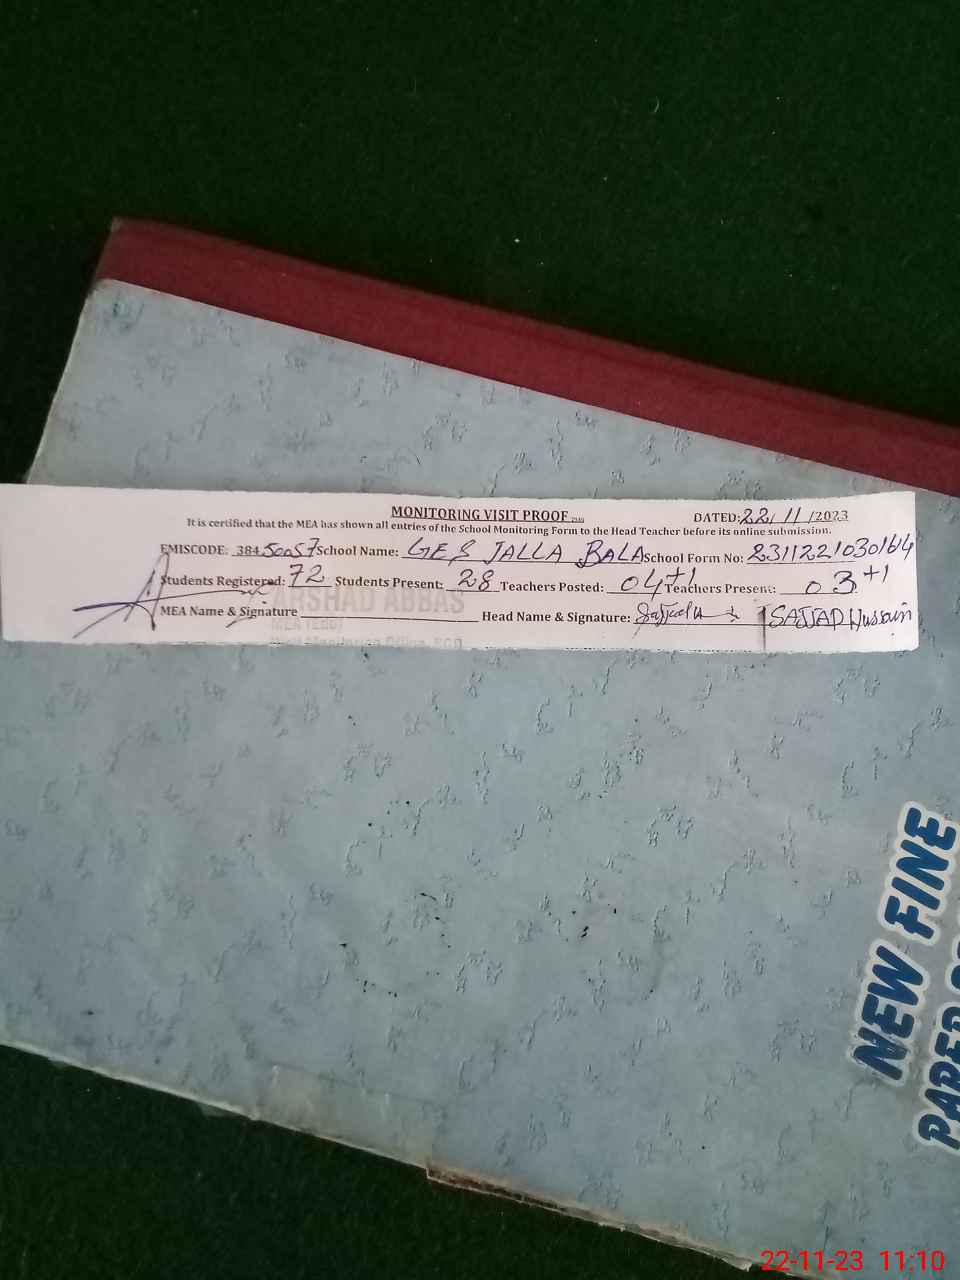 MONITORING VISIT PROOF
DATED: 22/11/2023
It is certified that the MEA has shown all entries of the School Monitoring Form to the Head Teacher before its online submission.
EMISCODE: 384 50057 School Name: GES JALLA BALA School Form No: 23112210301614
Students Registered: 72 Students Present: 28 Teachers Posted: 04+1 Teachers Present: 03+1
ARSHAD ABBAS
MEA Name & Signature Head Name & Signature: SAJJAD Hussain
NEW FINE
22-11-23 11:10